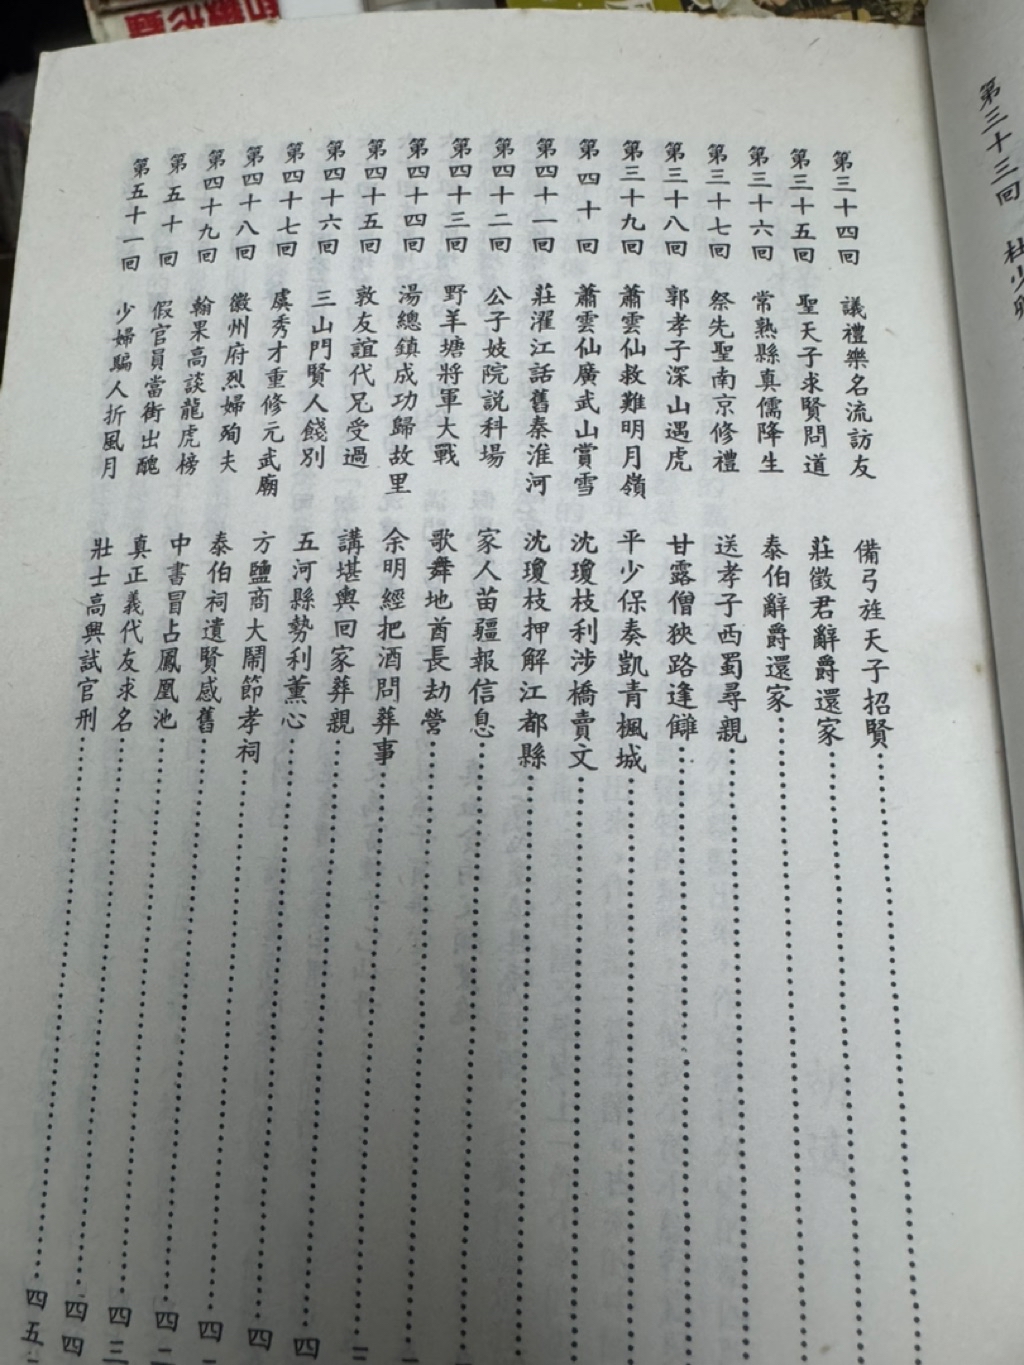 第三十三回 杜少
第三十四回 議禮樂名流訪友 備弓旌天子招賢
第三十五回 聖天子求賢問道 莊徵君辭爵還家
第三十六回 常熟縣真儒降生 泰伯辭爵還家
第三十七回 祭先聖南京修禮 送孝子西蜀尋親
第三十八回 郭孝子深山遇虎 甘露僧狹路逢讎
第三十九回 蕭雲仙救難明月嶺 平少保奏凱青楓城
第四十回 蕭雲仙廣武山賞雪 沈瓊枝利涉橋賣文
第四十一回 莊濯江話舊秦淮河 沈瓊枝押解江都縣
第四十二回 公子妓院說科場 家人苗疆報信息
第四十三回 野羊塘將軍大戰 歌舞地酋長劫營
第四十四回 湯總鎮成功歸故里 余明經把酒問葬事
第四十五回 敦友誼代兄受過 講堪輿回家葬親
第四十六回 三山門賢人餞別 五河縣勢利薰心
第四十七回 虞秀才重修元武廟 方鹽商大鬧節孝祠
第四十八回 徽州府烈婦殉夫 泰伯祠遺賢感舊
第四十九回 翰果高談龍虎榜 中書冒占鳳凰池
第五十回 假官員當街出醜 真正義代友求名
第五十一回 少婦騙人折風月 壯士高興試官刑